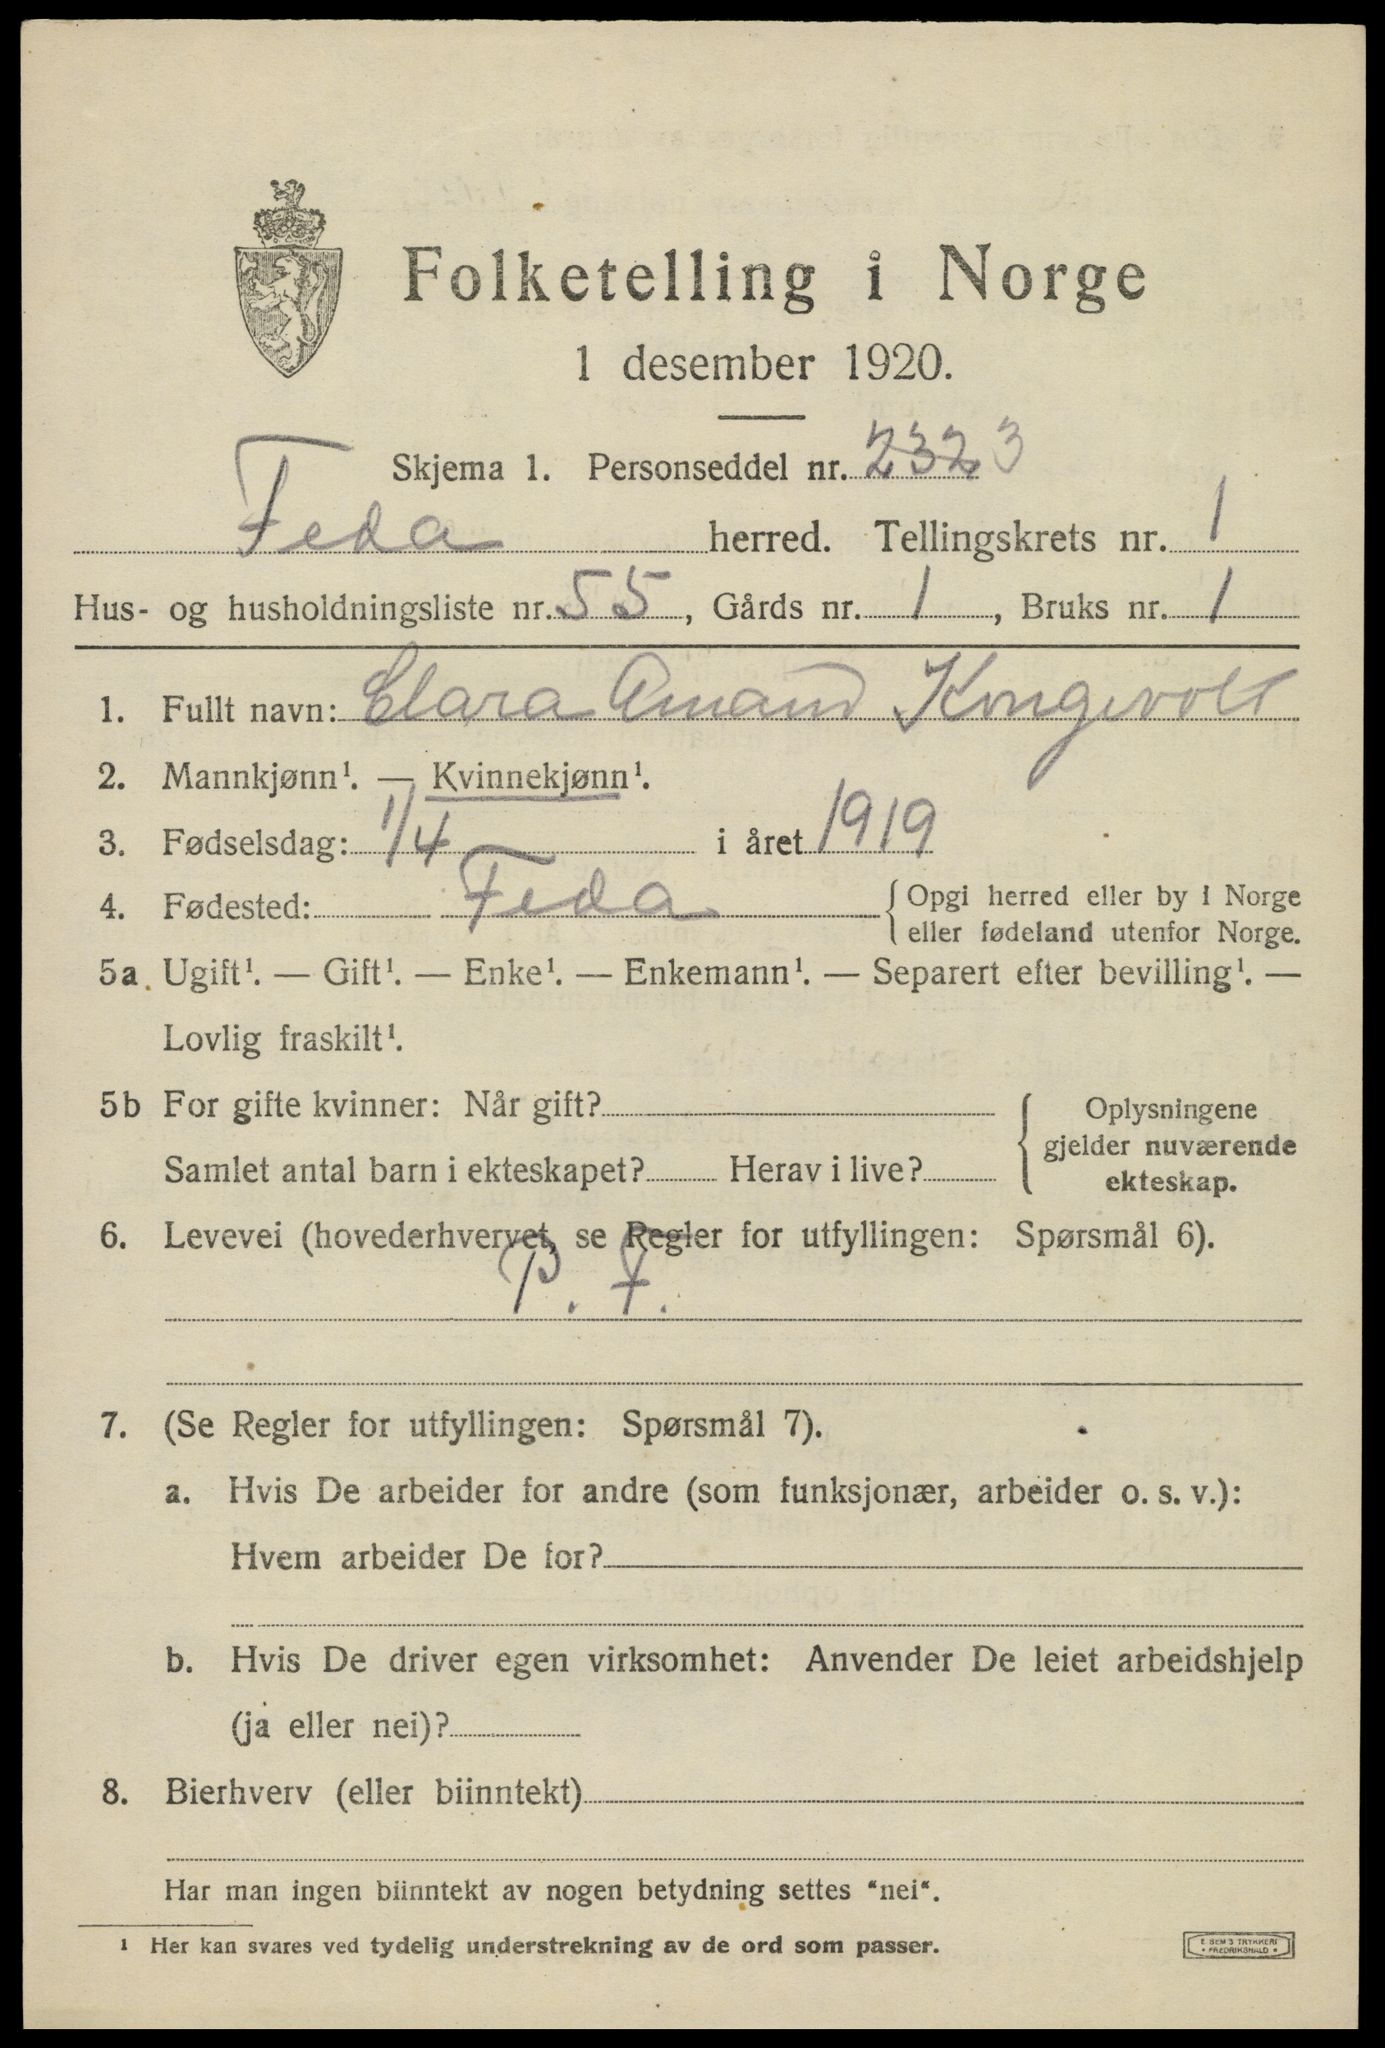 Folketelling i Norge
1 desember 1920.
Skjema 1. Personseddel nr. 2323
Feda herred. Tellingskrets nr. 1
Hus- og husholdningsliste nr. 55, Gårds nr. 1, Bruks nr. 1
1. Fullt navn: Clara Amand Kongevolt
2. Mannkjønn¹. — Kvinnekjønn¹.
3. Fødselsdag: 1/4 i året 1919
4. Fødested: Feda {Opgi herred eller by i Norge
eller fødeland utenfor Norge.
5a. Ugift¹. — Gift¹. — Enke¹. — Enkemann¹. — Separert efter bevilling¹. —
Lovlig fraskilt¹.
5b For gifte kvinner: Når gift? { Oplysningene
gjelder nuværende
Samlet antal barn i ekteskapet? Herav i live?
ekteskap.
6. Levevei (hovederhvervet, se Regler for utfyllingen: Spørsmål 6).
P. F.
7. (Se Regler for utfyllingen: Spørsmål 7).
a. Hvis De arbeider for andre (som funksjonær, arbeider o. s. v.):
Hvem arbeider De for?
b. Hvis De driver egen virksomhet: Anvender De leiet arbeidshjelp
(ja eller nei)?
8. Bierhverv (eller biinntekt)
Har man ingen biinntekt av nogen betydning settes "nei".
¹ Her kan svares ved tydelig understrekning av de ord som passer.
E. SEM'S TRYKKERI
• FREDRIKSHALD •